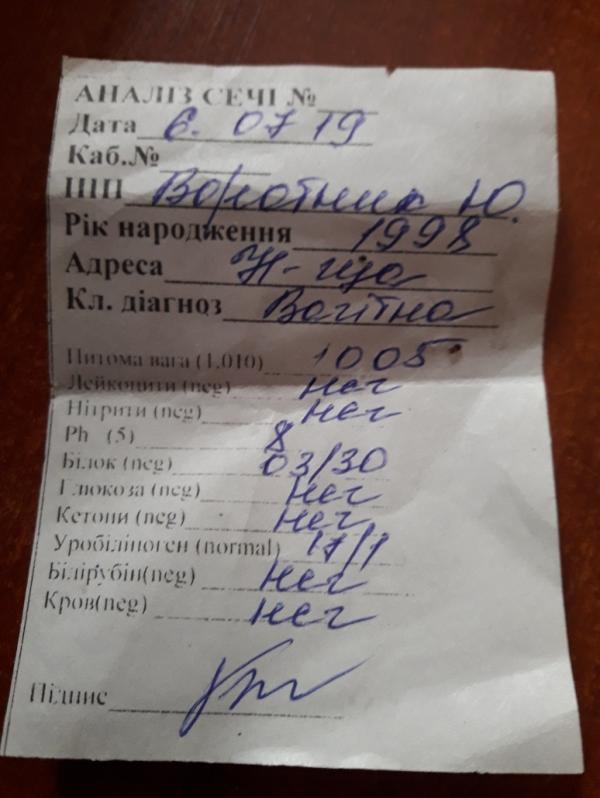 АНАЛІЗ СЕЧІ №
Дата 6. 07 19
Каб.№
ПІП Воротник Ю.
Рік народження 1998
Адреса
Кл. діагноз Вагітна
Питома вага (1,010) 1005
Лейкоцити (neg) нег
Нітрити (neg) нег
Ph (5) 8
Білок (neg) 03/30
Глюкоза (neg) нег
Кетони (neg) нег
Уробіліноген (normal) 17/1
Білірубін(neg) нег
Кров(neg) нег
Підпис